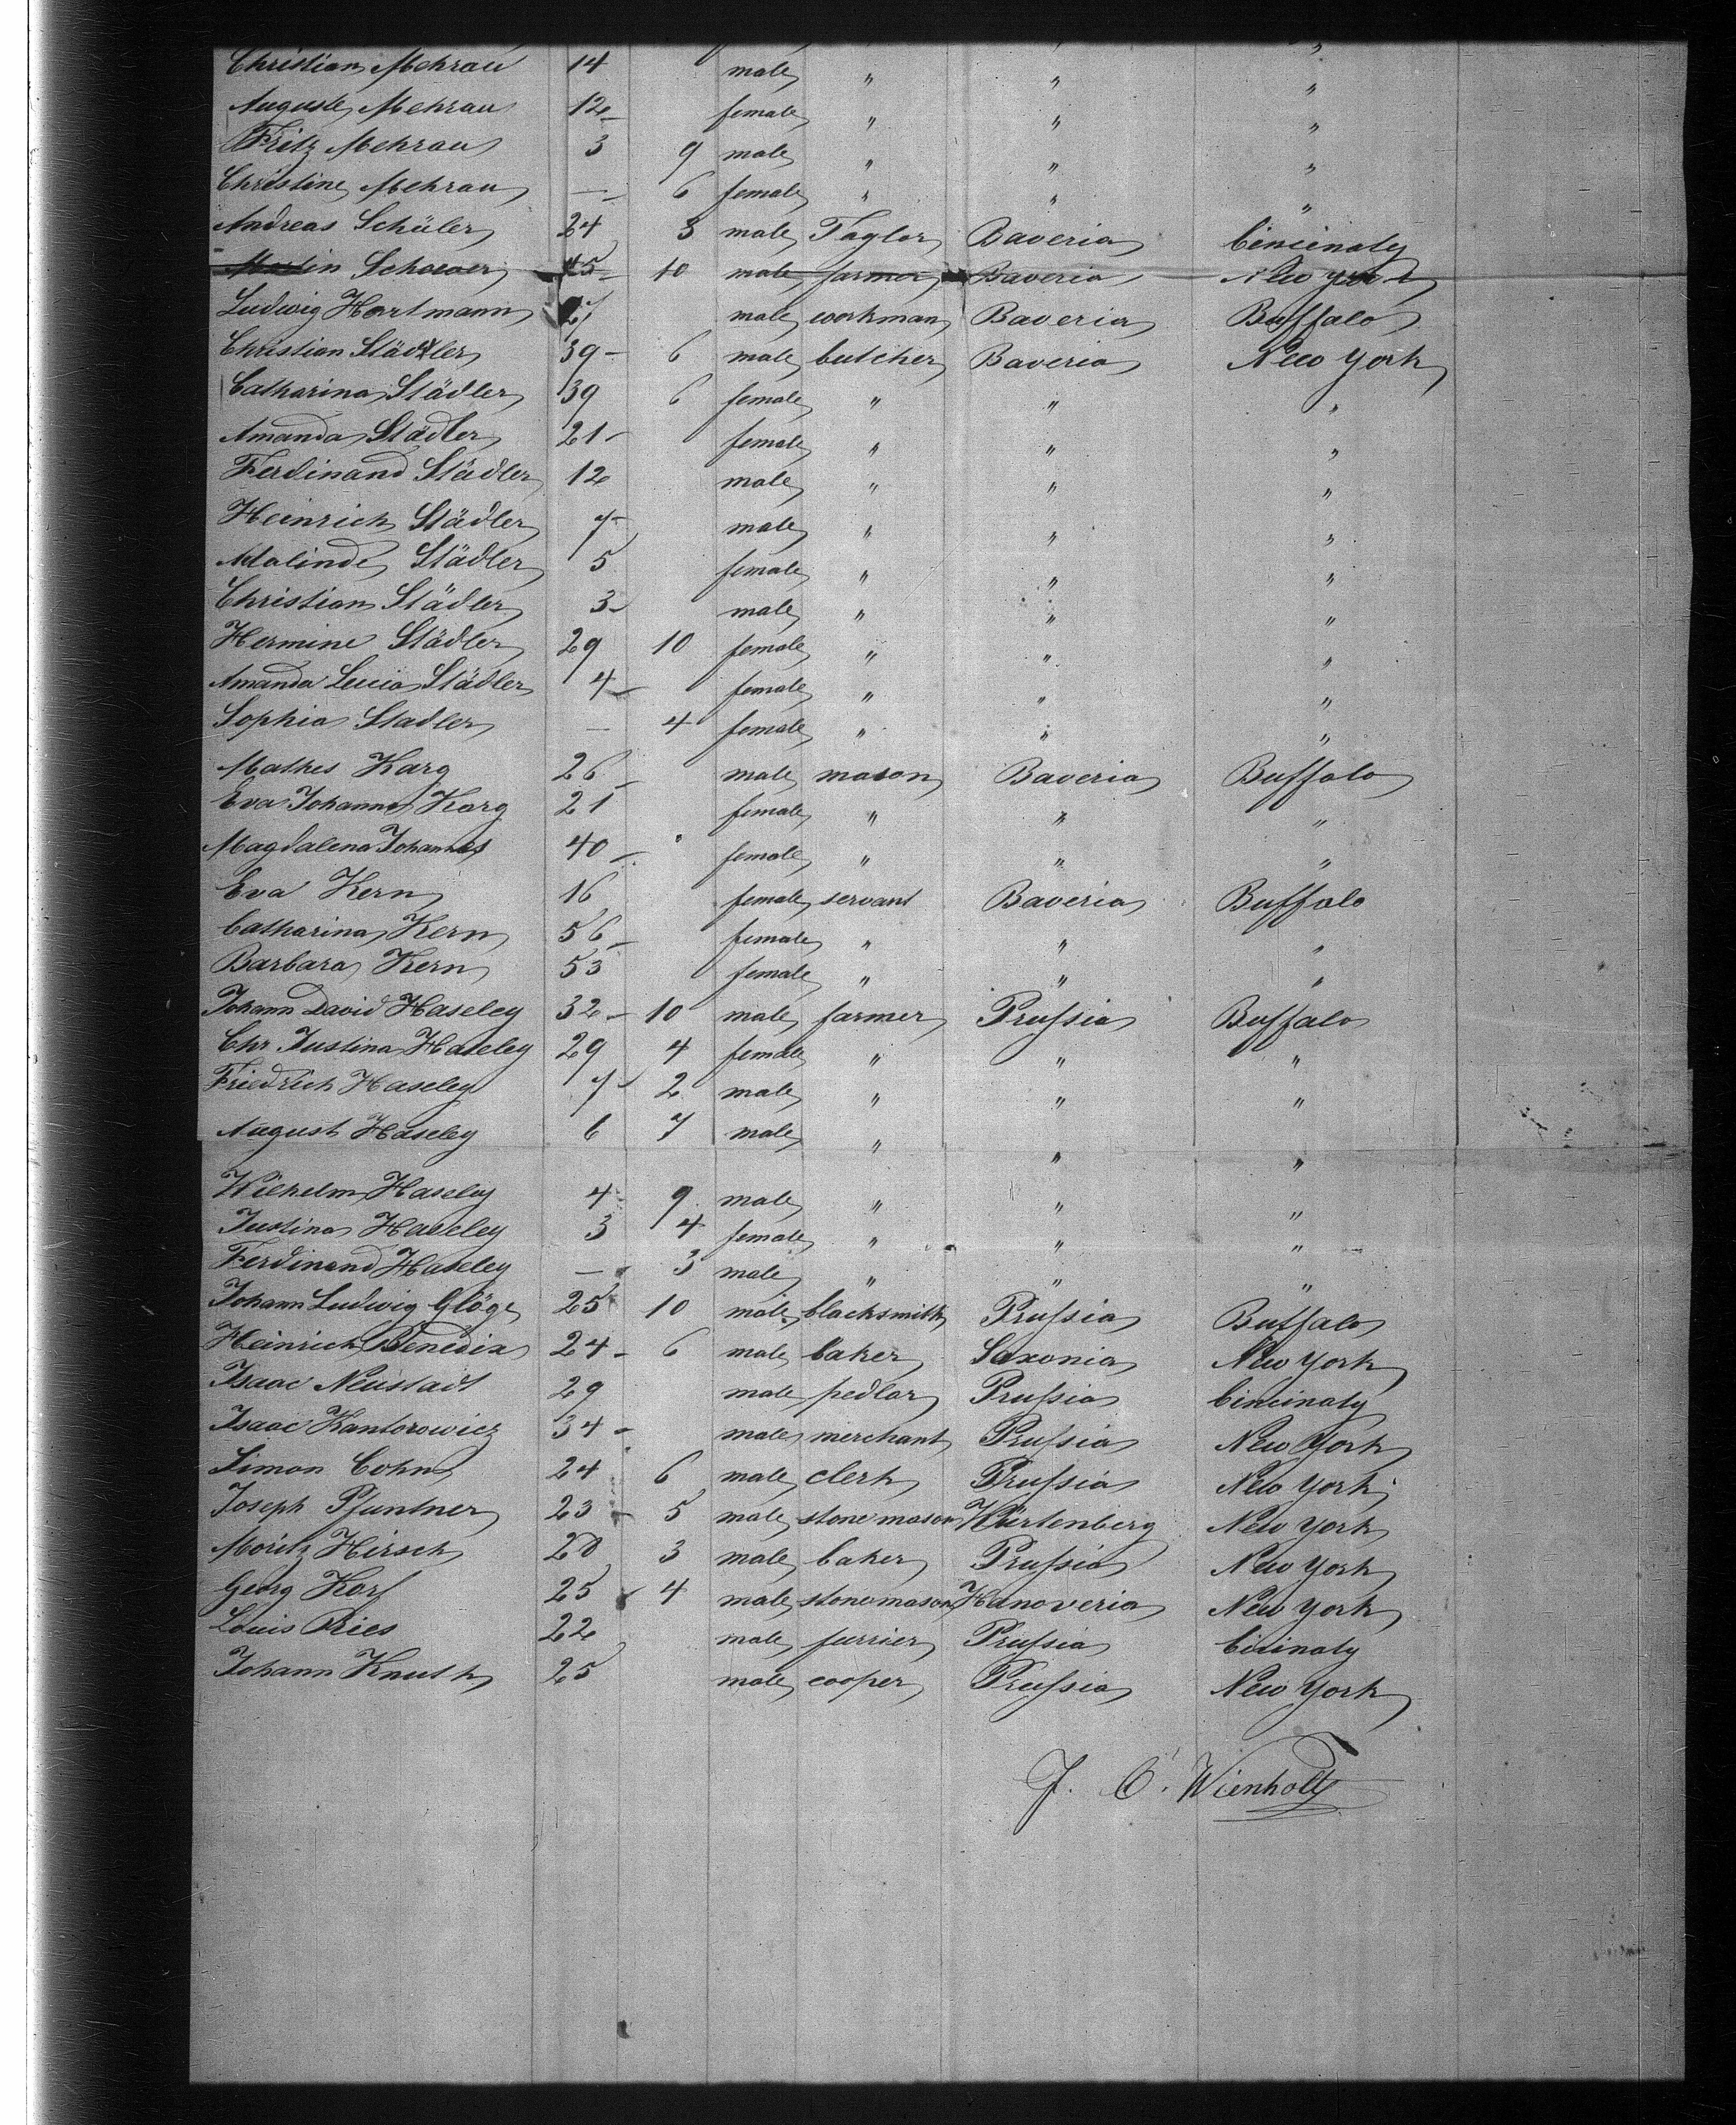 Christian Mehrau 14 male " " "
Auguste Mehrau 12 female " " "
Fritz Mehrau 3 9 male " " "
Christine Mehrau — 6 female " " "
Andreas Schüler 24 3 male Taylor Baveria Cincinaty
Martin 45 10 male farmer Baveria New York
Ludwig Hartmann 27 male workman Baveria Buffalo
Christian Städler 39 6 male butcher Baveria New York
Catharina Städler 39 6 female " " "
Amanda Städler 21 female " " "
Ferdinand Städler 12 male " " "
Heinrich Städler 7 male " " "
Malinde Städler 5 female " " "
Christian Städler 3 male " " "
Hermine Städler 29 10 female " " "
Amanda Lucia Städler 4 female " " "
Sophia Stadler — 4 female " " "
Mathes Karg 26 male mason Baveria Buffalo
Eva Johanna Karg 21 female " " "
Magdalena Johannes 40 female " " "
Eva Kern 16 female servant Baveria Buffalo
Catharina Kern 56 female " " "
Barbara Kern 53 female " " "
Johann David Haseley 32 10 male farmer Prussia Buffalo
Chr Justina Haseley 29 4 female " " "
Friedrich Haseley 7 2 male " " "
August Haseley 6 7 male " " "
Wilhelm Haseley 4 9 male " " "
Justina Haseley 3 4 female " " "
Ferdinand Haseley — 3 male " " "
Johann Ludwig Glöge 25 10 male blacksmith Prussia Buffalo
Heinrich Benedix 24 6 male baker Saxonia New York
Isaac Neustadt 29 male pedlar Prussia Cincinaty
Isaac Kantorowicz 34 male merchant Prussia New York
Simon Cohn 24 6 male clerk Prussia New York
Joseph Pfuntner 23 5 male stone mason Würtenberg New York
Moritz Hirsch 28 3 male baker Prussia New York
Georg 25 4 male stonemason Hanoveria New York
Louis Ries 22 male furrier Prussia Cicinaty
Johann Knuth 25 male cooper Prussia New York
J. C. Wienholtz